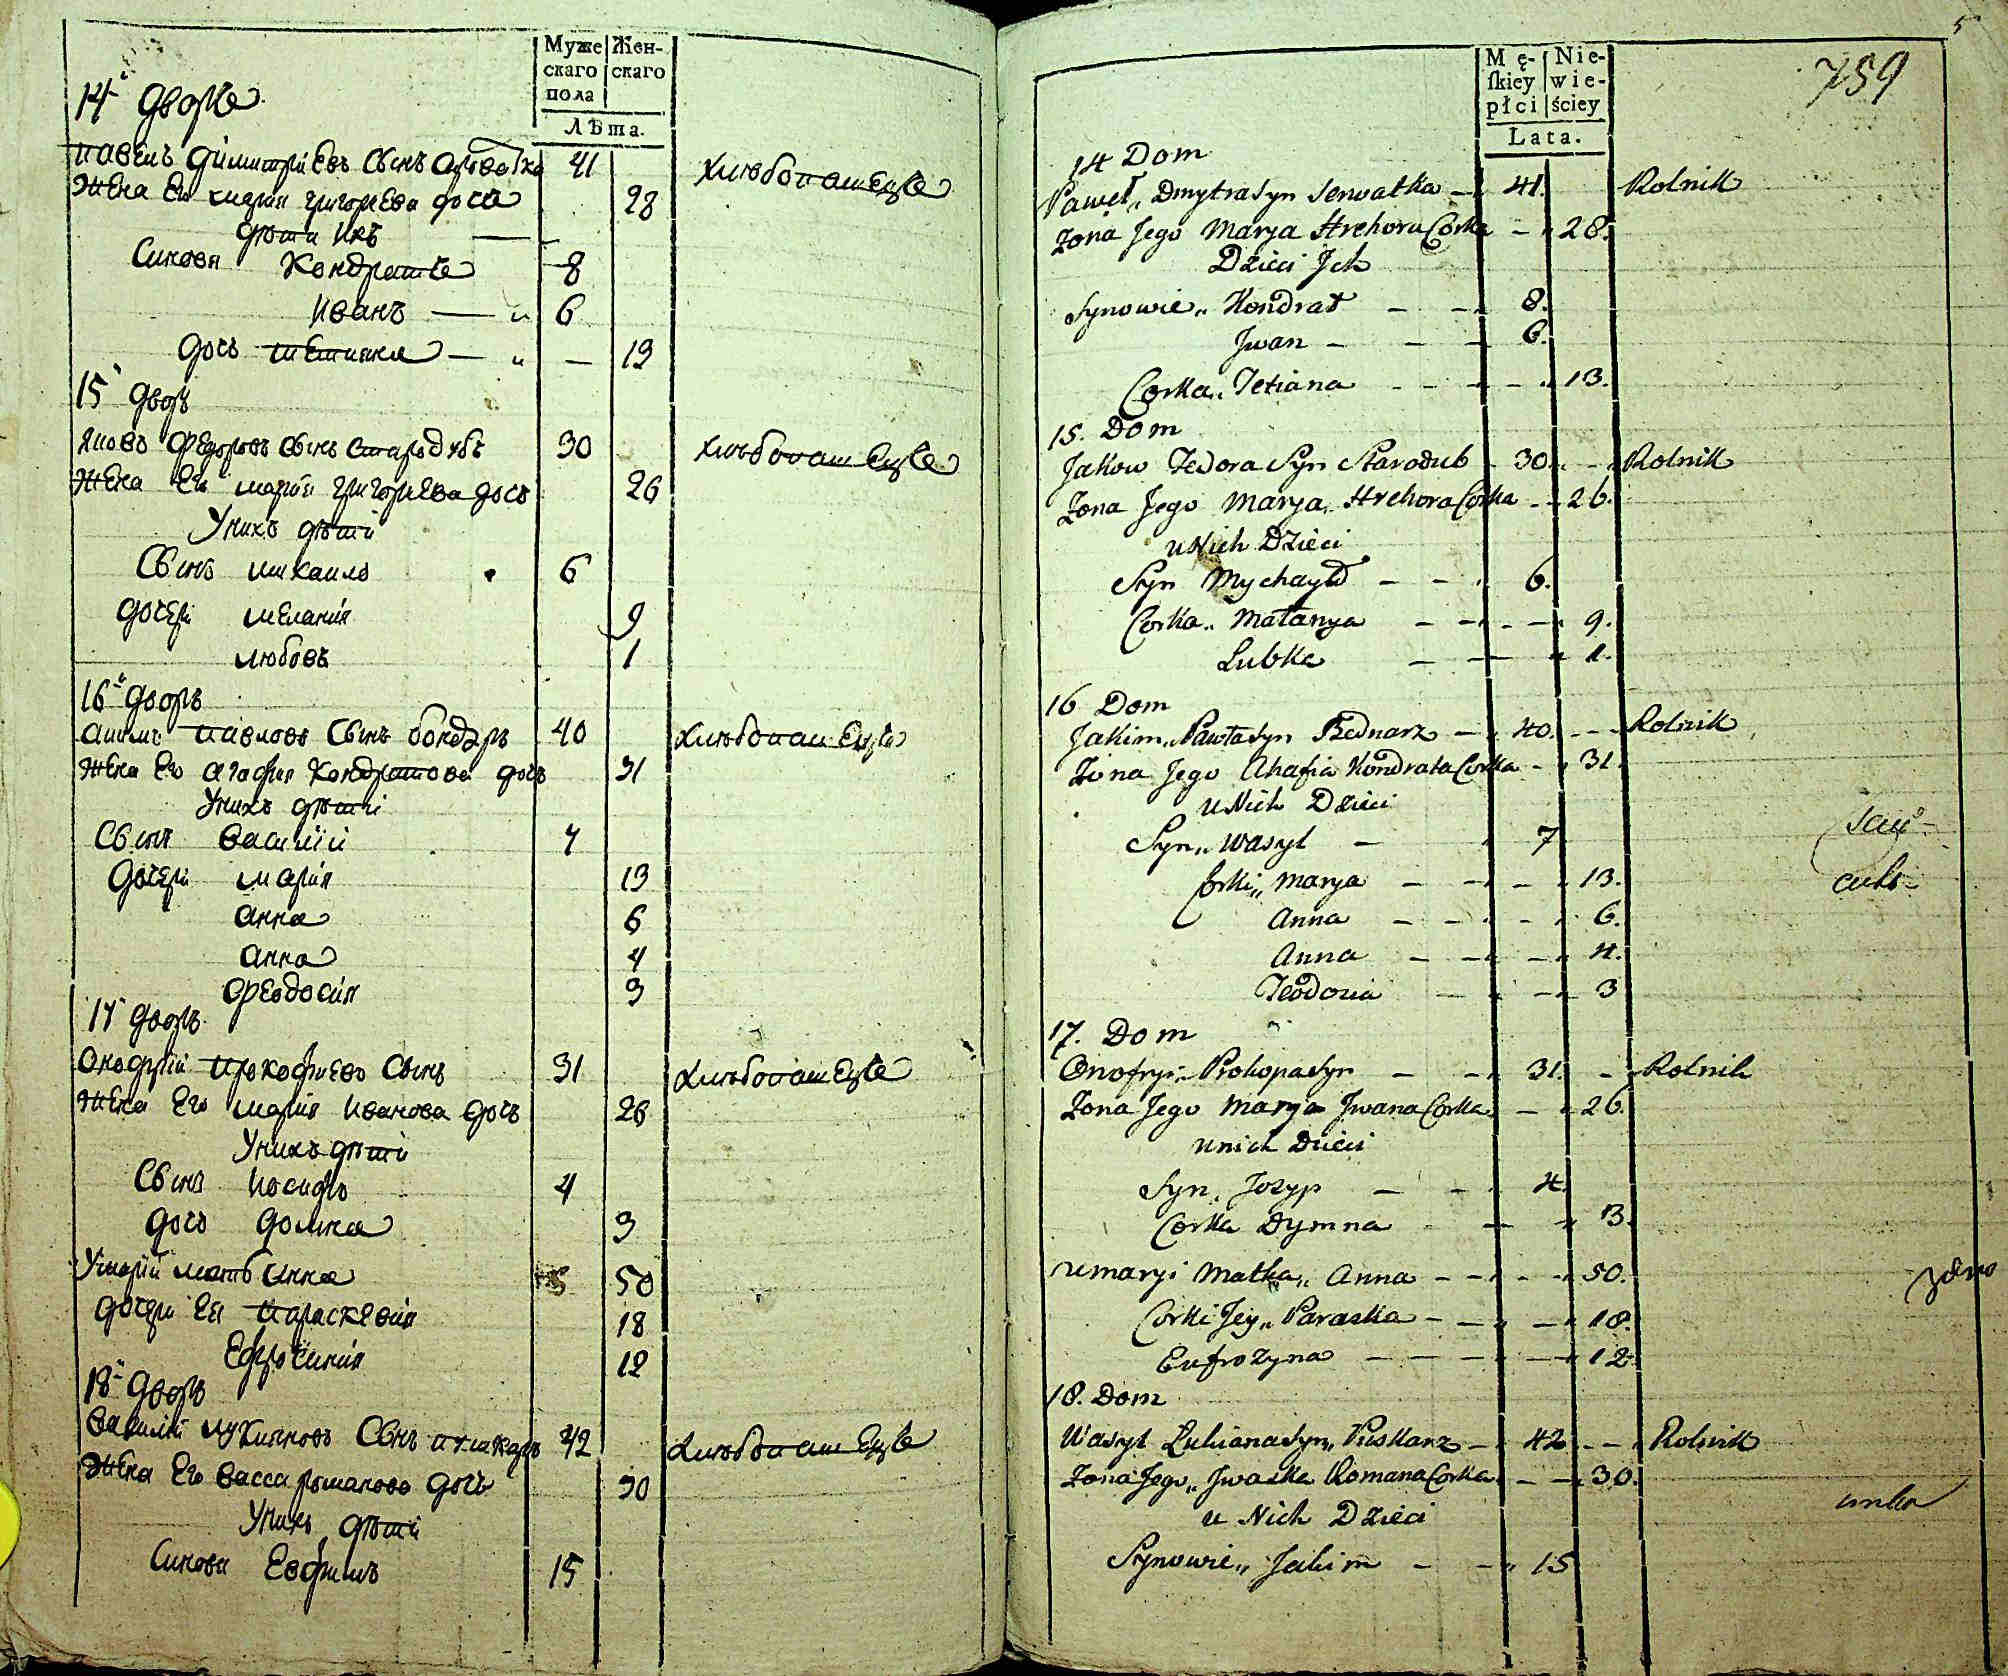 Муже
скаго
пола
Жен-
скаго
Лѣта.
14й дворъ
павелъ димитріевъ сынъ сироватка 41 хлебопашецъ
жена его марія григорева дочь 28
дѣти ихъ
Синовя Кондратъ 8
иванъ — 6
дочь татияна — 13
15й дворъ
яковъ федоровъ сынъ стародубъ 30 хлебопашецъ
жена его марія григорева дочь 26
Унихъ дѣти
Сынъ михаило 6
дочери меланія 9
любовъ 1
16й дворъ
акимъ павловъ сынъ бондаръ 40 хлебопашецъ
жена его агафия кондратова дочь 31
Унихъ дѣти
Сынъ василій 7
дочери марія 13
анна 6
анна 4
феодосия 3
17й дворъ
онофрій прокофиевъ сынъ 31 хлебопашецъ
жена его марія иванова дочь 26
Унихъ дѣти
Сынъ иосифъ 4
дочь домна 3
Умарій мать анна 50
дочери ея параскевия 18
Ефросинія 12
18й дворъ
василій лукияновъ сынъ пушкаръ 42 хлебопашецъ
жена его васса романова дочь 30
Унихъ дѣти
Синовя Евфимъ 15
5
759
Mę-
ſkiey
płci
Nie-
wie-
ściey
Lata.
14 Dom
Paweł„ Dmytra Syn Serwatka — 41. Rolnik
Żona Jego Marya Hrehora Corka — 28.
Dzieci Jch
Synowie„ Kondrat - - 8.
Jwan - - - 6.
Corka„ Tetiana - - - 13.
15. Dom
Jakow Fedora Syn Starodub - 30. - - Rolnik
Żona Jego Marya„ Hrehora Corka - - 26.
u Nich Dzieci
Syn Mychayło - - - 6.
Corka„ Małanya - - - - 9.
Lubka - - - 1.
16 Dom
Jakim„ Pawła Syn Bednarz - 40. - - - Rolnik
Żona Jego Ahafia Kondrata Corka - - 31.
u Nich Dzieci
Syn„ Wasyl - 7
Corki„ Marya - - - - 13.
Anna - - - - 6.
Anna - - - - 4.
Teodozia - - - 3
17. Dom
Onofryi„ Prokopa Syn - - 31. - Rolnik
Żona Jego Marya Jwana Corka - - 26.
u nich Dzieci
Syn„ Jozyp - - 4.
Corka Dymna - - - 3.
u Maryi Matka„ Anna - - - - 50.
Corki Jey„ Paraska - - - - 18.
Eufrozyna - - - - 12.
18. Dom
Wasyl Łukiana Syn„ Puskarz - 42. - - Rolnik
Żona Jego„ Jwaska Romana Corka - - 30.
u Nich Dzieci
Synowie„ Jakim - - 15